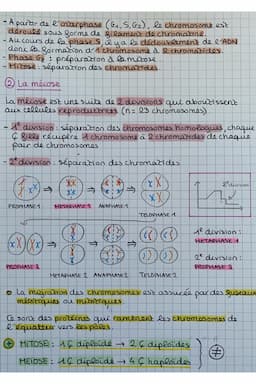 - A partir de l'interphase (G1, S, G2), le chromosome est
déroulé sous forme de filament de chromatine
- Au cours de la phase S il y a le dédoublement de l'ADN
donc la formation d'1 chromosome à 2 chromatides.
- Phase G2 : préparation à la mitose
- Mitose : séparation des chromatides
② La méiose
La méiose est une suite de 2 divisions qui aboutissent
aux cellules reproductrices (n = 23 chromosomes)
- 1e division : séparation des chromosomes homologues, chaque
¢ fille récupère 1 chromosome à 2 chromatides de chaque
pair de chromosomes.
- 2e division : séparation des chromatides
2e division
PROPHASE 1 METAPHASE 1 ANAPHASE 1
TELOPHASE 1
1e division :
METAPHASE 1
2e division :
PROPHASE 2
PROPHASE 2
METAPHASE 2 ANAPHASE 2 TELOPHASE 2
La migration des chromosomes est assurée par des fuseaux
méiotiques ou mitotiques.
Ce sont des protéines qui ramènent les chromosomes de
l'équateur vers les pôles.
+ MITOSE : 1 ¢ diploïde → 2 ¢ diploïdes
MEIOSE : 1 ¢ diploïde → 4 ¢ haploïdes
≠